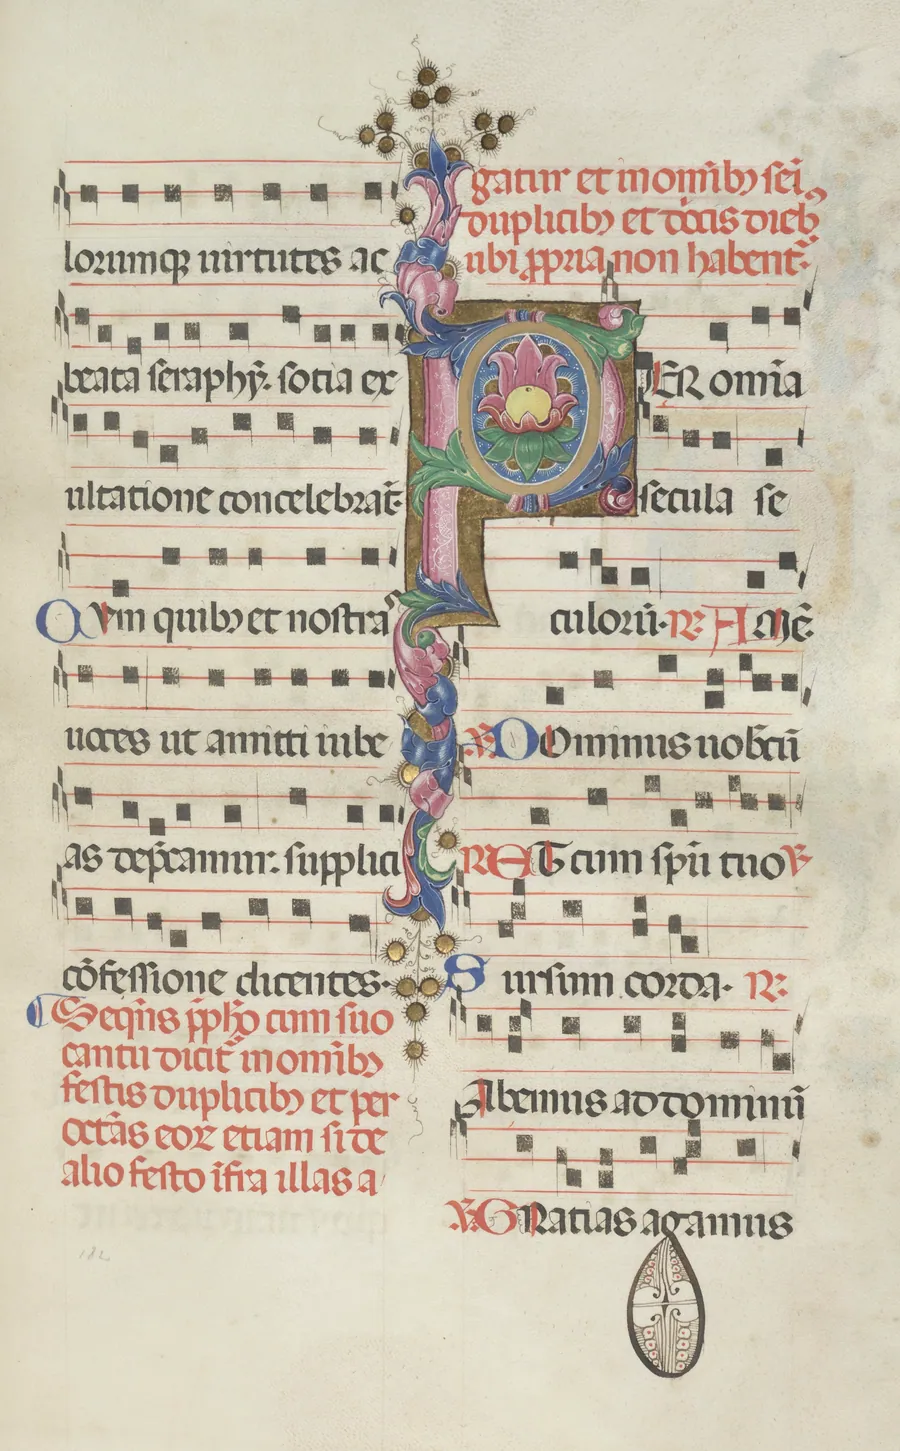 lorumqꝫ uirtutes ac
beata seraphȳ. sotia ex
ultatione concelebrāt.
QVm quibꝰ et nostra'
uoces ut amitti iube
as dep̄camur. supplici
cōfessione dicentes.
¶ Seqn̄s p̄pħo cum suo
cantu dicit̄ in om̄ibꝰ
festis duplicibꝰ et per
octās eoꝝ etiam si de
alio festo īfra illas a
182
gatur et in om̄ibꝰ sēi
duplicibꝰ et octīs dieb
ubi ꝓpria non habent̄.
PER om̄ia
secula se
culorū. R. AMē.
V. DOminus uobcū
R. ET cum sp̄u tuo V.
Sursum corda. R.
Abemus ad dominū
V. GRatias agamus